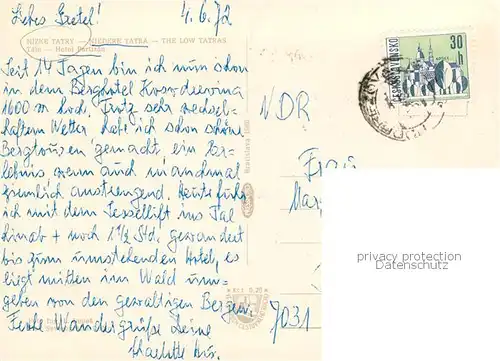 Liebes Gretel! 4.6.72
NÍZKE TATRY — NIEDERE TATRA — THE LOW TATRAS
Tále — Hotel Partizán
Seit 14 Tagen bin ich nun schon
in dem Berghotel
1600 m hoch. Trotz sehr wechsel-
haftem Wetter habe ich schon schöne
Bergtouren gemacht, ein Er-
lebnis wenn auch manchmal
ziemlich anstrengend. Heute fuhr
ich mit dem Sessellift ins Tal
hinab + noch 1½ Std. gewandert
bis zum umstehenden Hotel, es
liegt mitten im Wald um-
geben von den gewaltigen Bergen.
Frohe Wandergrüße Deine
Charlotte
Bratislava
ČESKOSLOVENSKO
30 h
NDR
Frau
Mar
7031
privacy protection
Datenschutz